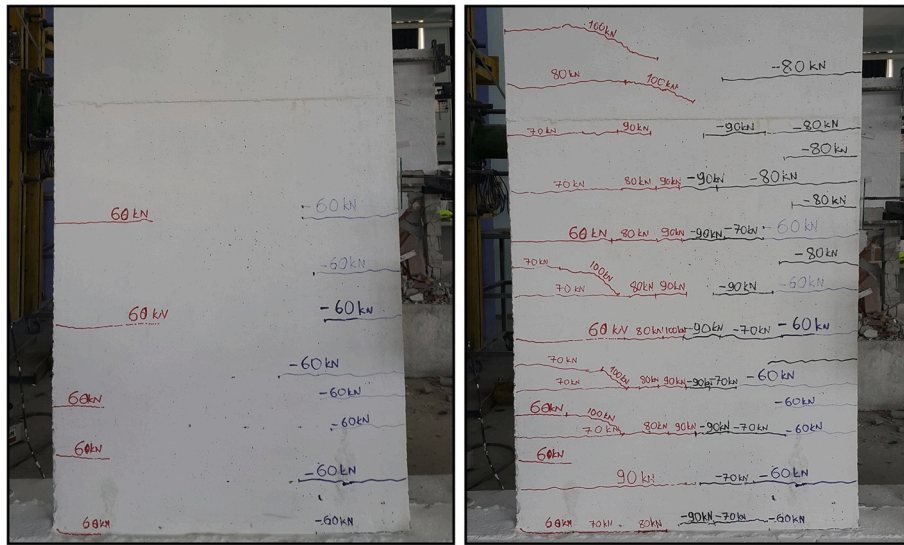 -60KN
60KN
-60KN
-60KN
60KN
-60KN
-60KN
60KN
-60KN
60KN
-60KN
60KN
-60KN
100KN
-80KN
80KN 100KN
70KN 90KN -90KN -80KN
-80KN
70KN 80KN 90KN -90KN -80KN
-80KN
60KN 80KN 90KN -90KN -70KN -60KN
-80KN
70KN 100KN
70KN 80KN 90KN -90KN -60KN
60KN 80KN 100KN -90KN -70KN -60KN
70KN
100KN
70KN 80KN 90KN -90KN -70KN -60KN
-60KN
60KN 100KN
70KN 80KN 90KN -90KN -70KN -60KN
60KN
90KN -70KN -60KN
60KN 70KN 80KN -90KN -70KN -60KN